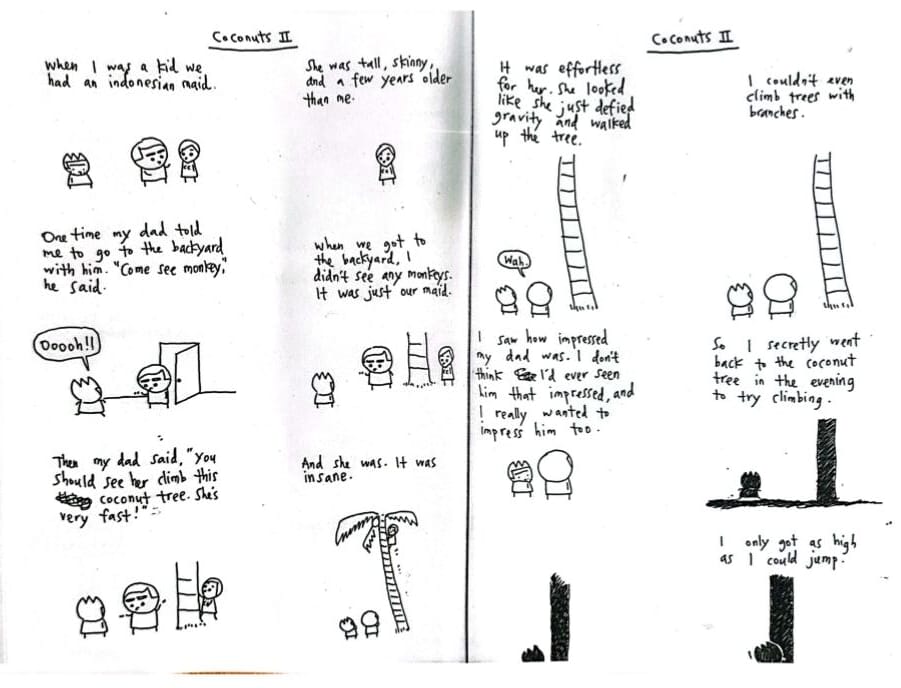 Coconuts II
When I was a kid we
had an indonesian maid.
She was tall, skinny,
and a few years older
than me.
One time my dad told
me to go to the backyard
with him. "Come see monkey,"
he said.
Doooh!!
When we got to
the backyard, I
didn't see any monkeys.
It was just our maid.
Then my dad said, "You
should see her climb this
coconut tree. She's
very fast!"
And she was. It was
insane.
Coconuts II
It was effortless
for her. She looked
like she just defied
gravity and walked
up the tree.
Wah.
I couldn't even
climb trees with
branches.
I saw how impressed
my dad was. I don't
think I'd ever seen
him that impressed, and
I really wanted to
impress him too.
So I secretly went
back to the coconut
tree in the evening
to try climbing.
I only got as high
as I could jump.